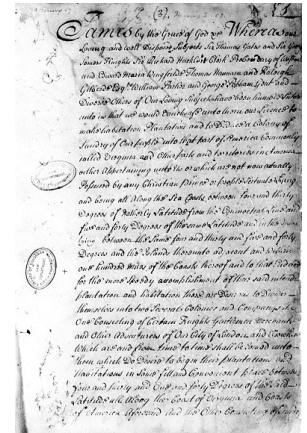 (3)
James by the Grace of God &c Whereas our
Loving and well Disposed Subjects Sir Thomas Gates and Sir George
Somers Knights Sir Richard Hackluit Clerk Prebendary of
and Edward Maria Wingfield Thomas Hannam and Raleigh
Gilbert William Parker and George Popham and
Divers Others of Our Loving Subjects have been humble
unto us that we would unto them our Licence to
make habitation Plantation and to Deduce a Colony of
Sundry of Our People into that part of America Commonly
called Virginia and Other parts and territories in America
either Appertaining unto Us or which are not now actually
Possessed by any Christian Prince or People Scituate Lying
and being all along the Sea Coasts between four and thirty
Degrees of Northerly Latitude from the Equinoctial Line and
five and forty Degrees of the same Latitude and in the
between the Same four and thirty and five and forty
Degrees and the Islands thereunto adjacent and
one hundred Miles of the Coasts thereof and to that End and
for the more Speedy accomplishment of their said intended
plantation and habitation there are Desirous to Divide
themselves into two Several Colonies and Companies the
One Consisting of Certain Knights Gentlemen Merchants
and Other Adventurers of Our City of London and
Which are and from time to time shall be Joined unto
them which Do Desire to begin their Plantation and
Habitations in Some fitt and Convenient place between
four and thirty and One and forty Degrees of the said
Latitude all Along the Coast of Virginia and Coasts
of America Aforesaid and the Other Consisting of